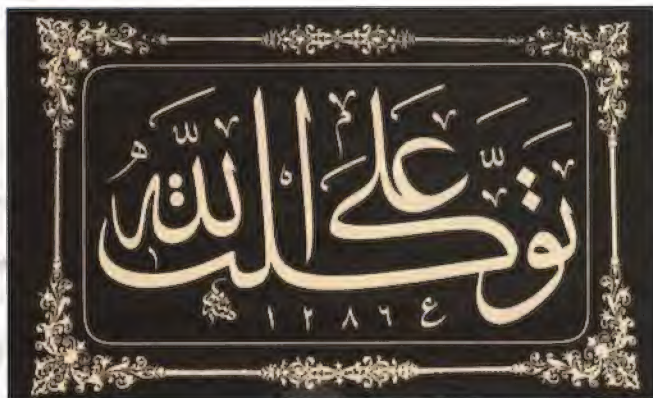 توكلت على الله
ع ١٢٨٦